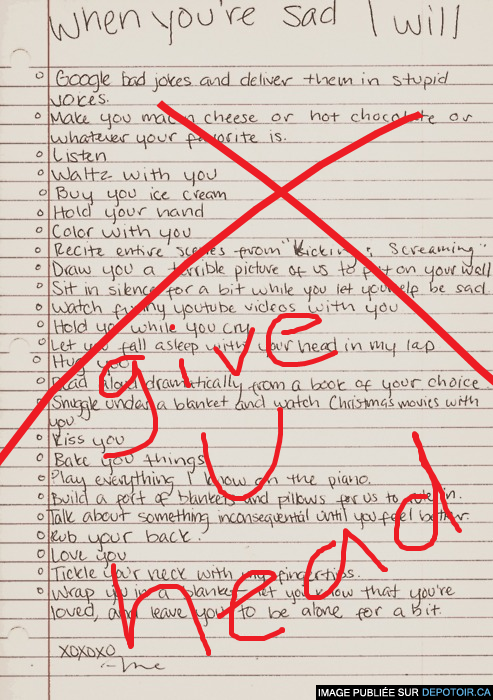 When you're sad I will
Google bad jokes and deliver them in stupid
voices.
Make you mac n cheese or hot chocolate or
whatever your favorite is.
Listen
Waltz with you
Buy you ice cream
Hold your hand
Color with you
Recite entire scenes from "Kicking & Screaming"
Draw you a terrible picture of us to put on your wall
Sit in silence for a bit while you let yourself be sad
Watch funny youtube videos with you
Hold you while you cry
Let you fall asleep with your head in my lap
Hug you
Read aloud dramatically from a book of your choice
Snuggle under a blanket and watch Christmas movies with
you
Kiss you
Bake you things
Play everything I know on the piano.
Build a fort of blankets and pillows for us to in.
Talk about something inconsequential until you feel better.
Rub your back.
Love you
Tickle your neck with my fingertips.
Wrap you in a blanket let you know that you're
loved, and leave you to be alone for a bit.
xoxoxo
-me
give
U
head
IMAGE PUBLIÉE SUR DEPOTOIR.CA